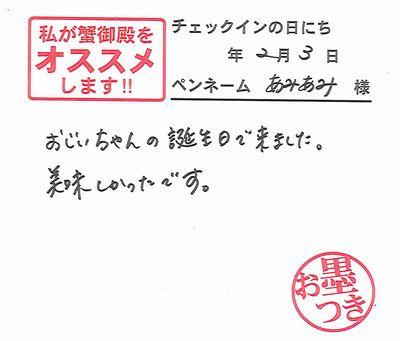 私が蟹御殿を
オススメ
します!!
チェックインの日にち
年 2月 3日
ペンネーム あみあみ 様
おじいちゃんの誕生日で来ました。
美味しかったです。
お墨
つき